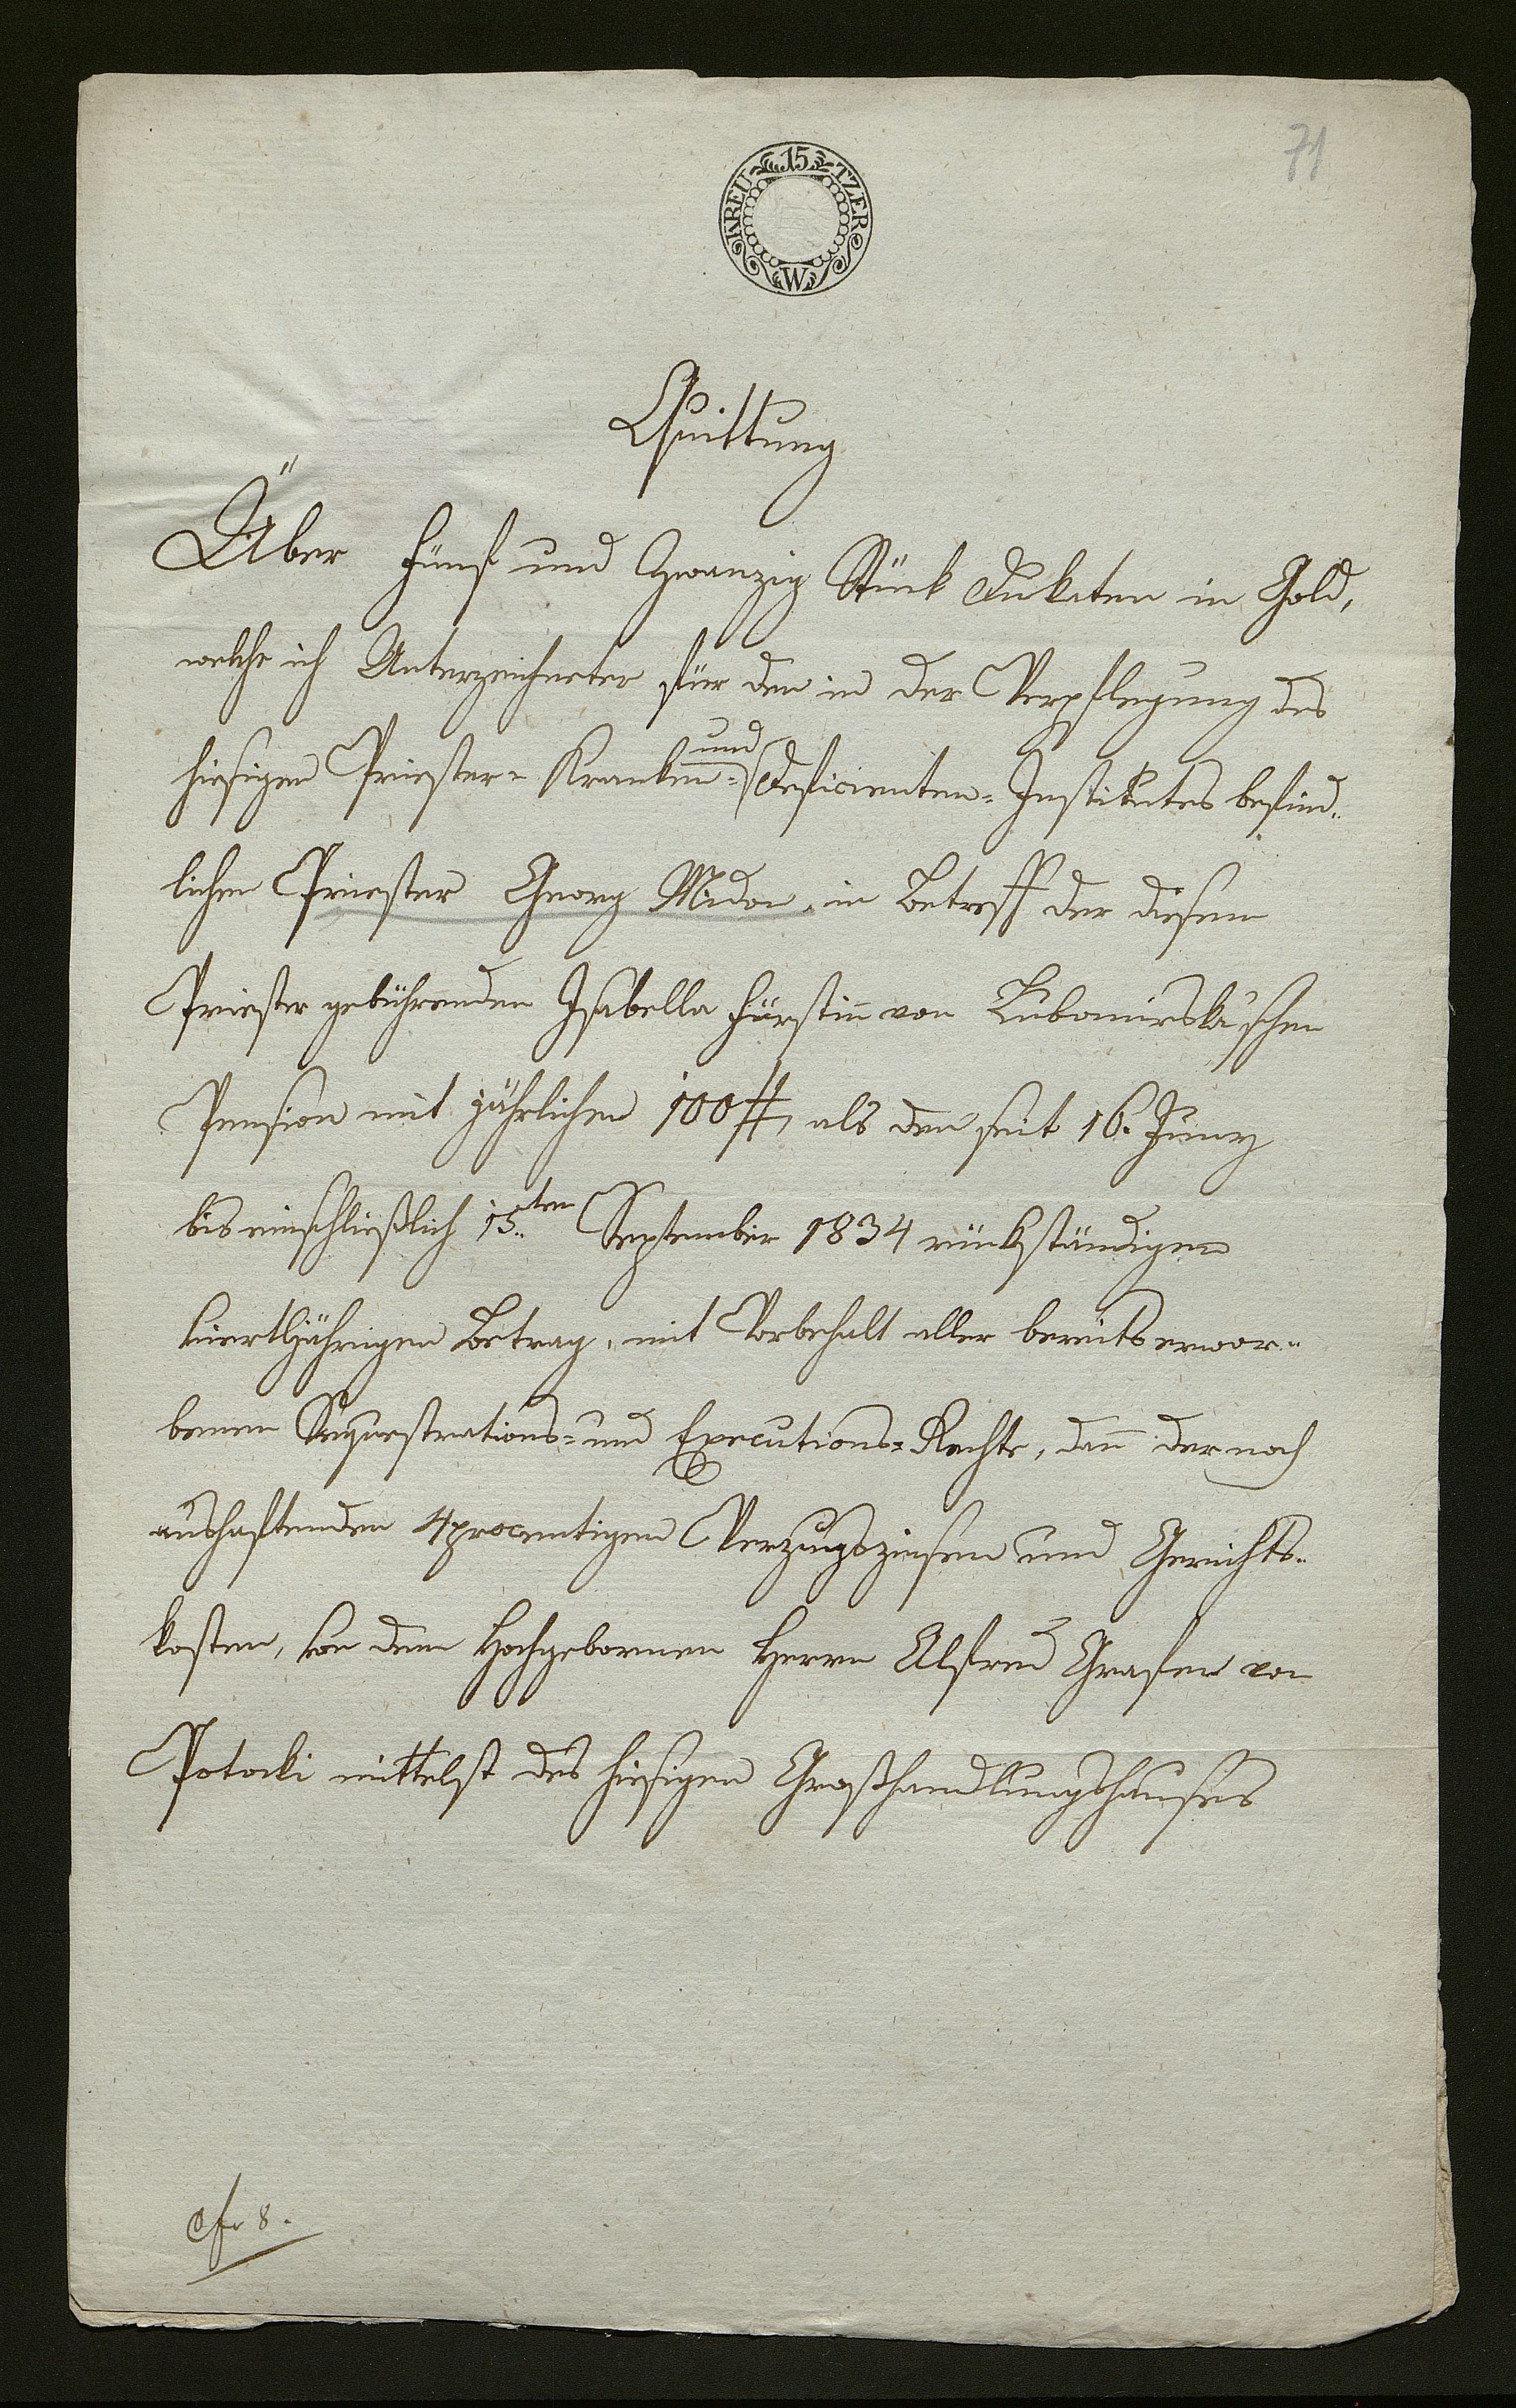 71
15 KREUTZER W
Quittung
Über Fünf und Zwanzig Stück Dukaten in Gold,
welche ich Unterzeichneter für den in der Verpflegung des
hiesigen Priester- Kranken- und Deficienten-Institutes befind-
lichen Priester Georg Midon, in Betreff der diesem
Priester gebührenden Isabella Fürstin̄ von Lubomirska'schen
Pension mit jährlichen 100 #, als den seit 16. Juny
bis einschließlich 15ten September 1834 rückständigen
viertljährigen Betrag, mit Vorbehalt aller bereits erwor-
benen Sequestrations- und Executions-Rechte, dan̄ der noch
aushaftenden 4procentigen Verzugszinsen und Gerichts-
kosten, von dem Hochgebornen Herrn Alfred Grafen von
Potocki mittelst des hiesigen Großhandlungshauses
8.